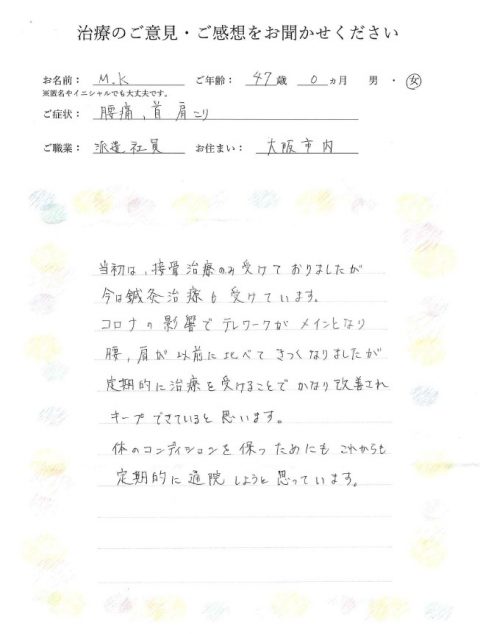 治療のご意見・ご感想をお聞かせください
お名前： M.K ご年齢： 47 歳 0 ヵ月 男 ・ 女
※匿名やイニシャルでも大丈夫です。
ご症状： 腰痛、首 肩こり
ご職業： 派遣社員 お住まい： 大阪市内
当初は、接骨治療のみ受けておりましたが
今は鍼灸治療も受けています。
コロナの影響でテレワークがメインとなり
腰、肩が以前に比べてきつくなりましたが
定期的に治療を受けることでかなり改善され
キープできていると思います。
体のコンディションを保つためにもこれからも
定期的に通院しようと思っています。